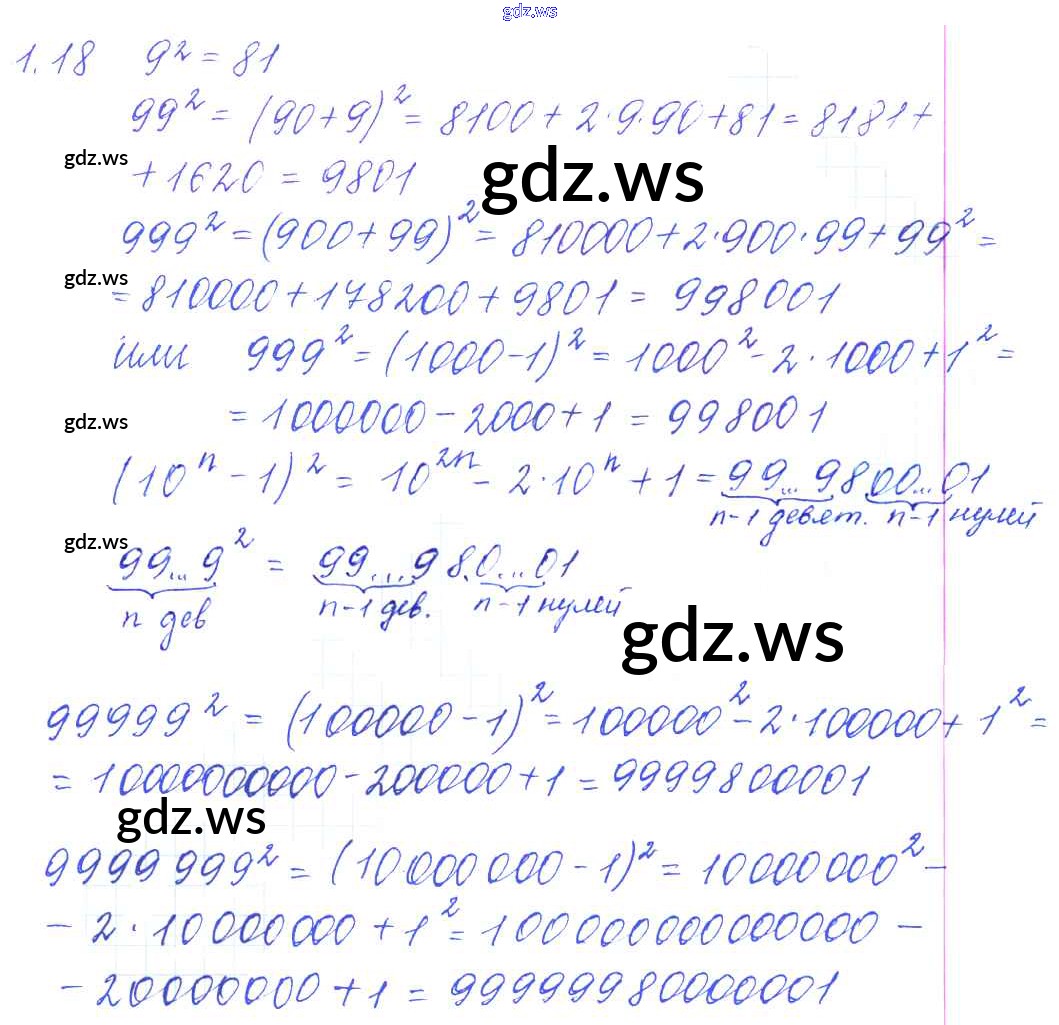 gdz.ws
1.18 9² = 81
99² = (90+9)² = 8100 + 2·9·90 + 81 = 8181 +
gdz.ws
+ 1620 = 9801
gdz.ws
999² = (900 + 99)² = 810000 + 2·900·99 + 99² =
gdz.ws
= 810000 + 178200 + 9801 = 998001
или 999² = (1000 - 1)² = 1000² - 2·1000 + 1² =
gdz.ws
= 1000000 - 2000 + 1 = 998001
(10ⁿ - 1)² = 10²ⁿ - 2·10ⁿ + 1 = 99...9800...01
n-1 девят. n-1 нулей
gdz.ws
99...9² = 99...980...01
n дев n-1 дев. n-1 нулей
gdz.ws
99999² = (100000 - 1)² = 100000² - 2·100000 + 1² =
= 10000000000 - 200000 + 1 = 9999800001
gdz.ws
9999999² = (10000000 - 1)² = 10000000² -
- 2·10000000 + 1² = 100000000000000 -
- 20000000 + 1 = 99999980000001